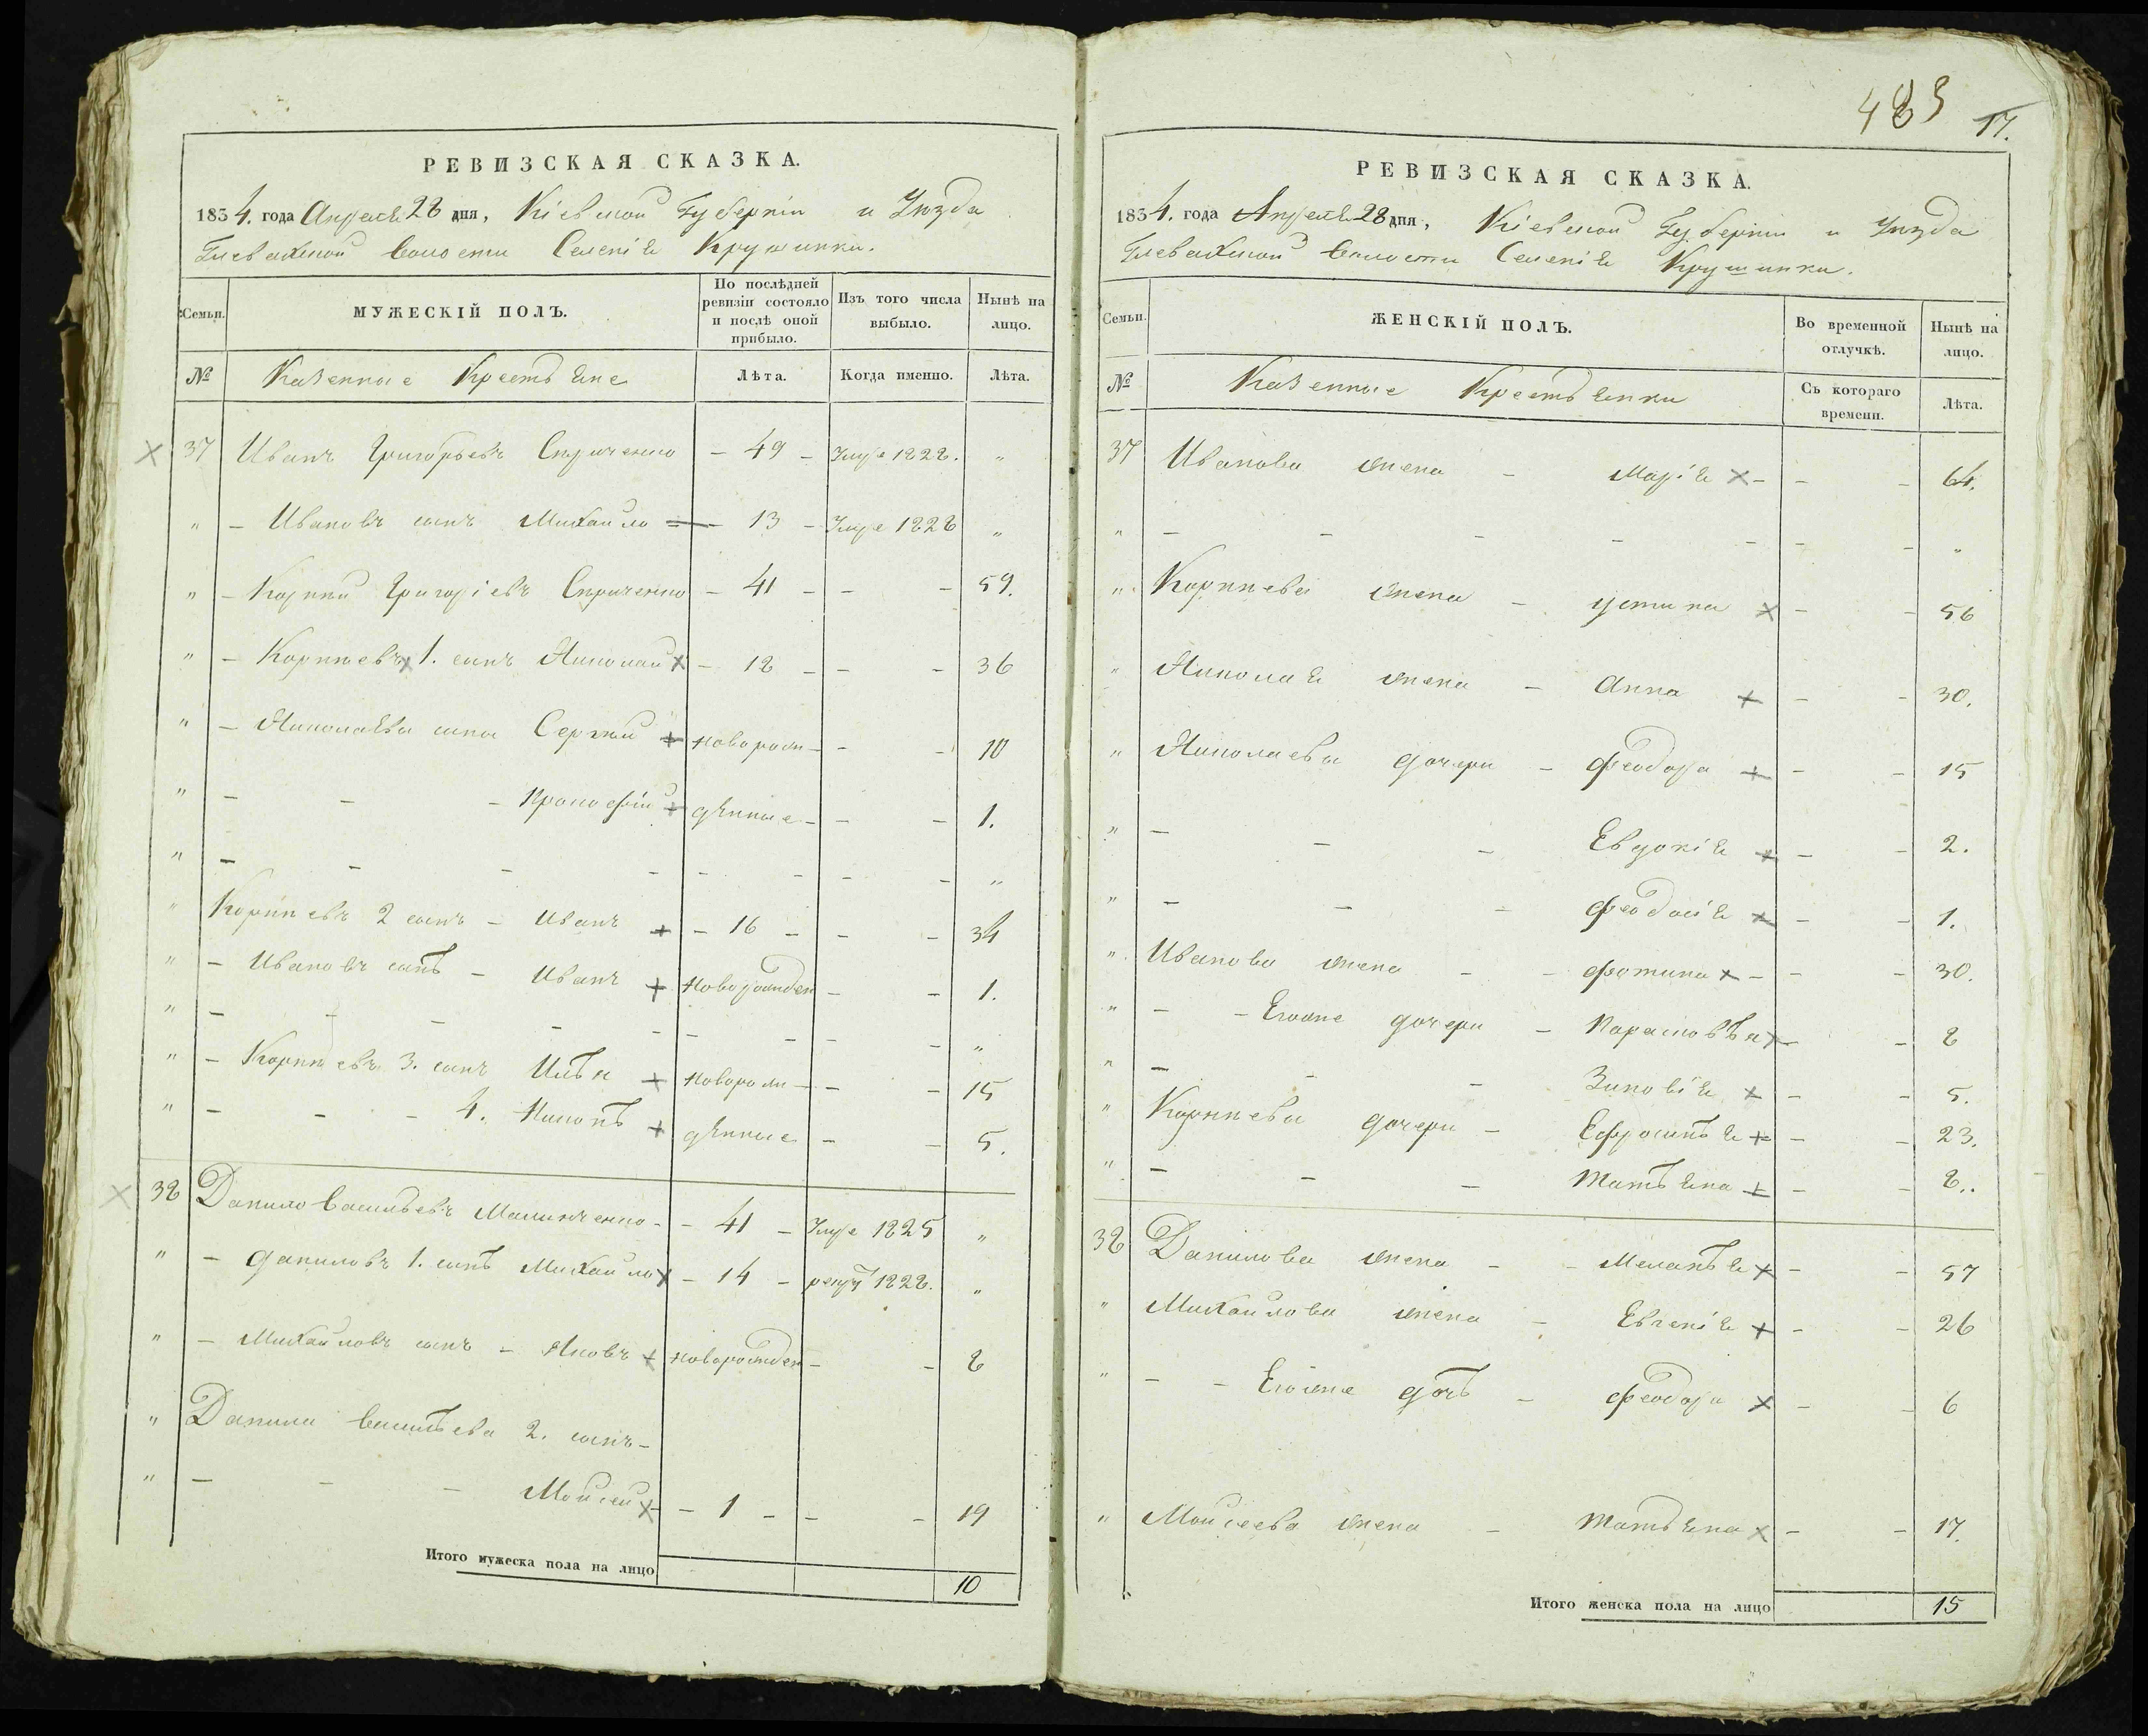 РЕВИЗСКАЯ СКАЗКА.
1834. года Апреля 28 дня, Кіевской Губерніи и Уѣзда
Глевахской Волости Селенія Крушинки.
Семьи.
МУЖЕСКІЙ ПОЛЪ.
По послѣдней ревизіи состояло и послѣ оной прибыло.
Изъ того числа выбыло.
Нынѣ на лицо.
№
Казенные Крестьяне
Лѣта.
Когда именно.
Лѣта.
37 Иванъ Григорьевъ - 49 - Умре 1828. "
" - Ивановъ сынъ Михайло - 13 - Умре 1828 "
" - Корній Григоріевъ - 41 - - - 59.
" - Корніевъ 1. сынъ Николай - 18 - - - 36
" - Николаевы сыны Сергѣй новорож - - - 10
" - - - Прокофій дѣнные - - - 1.
" - - - - - - - - "
" Корніевъ 2 сынъ - Иванъ - 16 - - - 34
" - Ивановъ сынъ - Иванъ новорожден - - 1.
" - - - - - - - - - "
" - Корніевъ 3. сынъ Илья новорож - - - 15
" - - - 4. Никонъ дѣнные - - 5.
38 Данило Васильевъ - - 41 - Умре 1825 "
" - Даниловъ 1. сынъ Михайло - 14 - рекрут 1828. "
" - Михайловъ сынъ - Яковъ новорожден - - 8
" Данила Васильева 2. сынъ -
" - - - Мойсей - 1 - - - 19
Итого мужеска пола на лицо 10
483 17.
РЕВИЗСКАЯ СКАЗКА.
1834. года Апреля 28 дня, Кіевской Губерніи и Уѣзда
Глевахской Волости Селенія Крушинки.
Семьи.
ЖЕНСКІЙ ПОЛЪ.
Во временной отлучкѣ.
Нынѣ на лицо.
№
Казенные Крестьянки
Съ котораго времени.
Лѣта.
37 Иванова жена - Марія - - - 64.
" - - - - - - - "
" Корніева жена - Устина - - 56
" Николая жена - Анна - - 30.
" Николаевы дочери - Феодора - - 15
" - - - Евдокія - - 2.
" - - - Феодосія - - 1.
" Иванова жена - - Фотина - - - 30.
" - - Егоже дочери - Парасковья - 8
" - - - Зиновія - - 5.
" Корніевы дочери - Ефросинья - - 23.
" - - - Татьяна - - 8.
38 Данилова жена - - Меланья - - 57
" Михайлова жена - Евгенія - - 26
" - - Егоже дочь - Феодора - - 6
" Мойсеева жена - Татьяна - - 17.
Итого женска пола на лицо 15